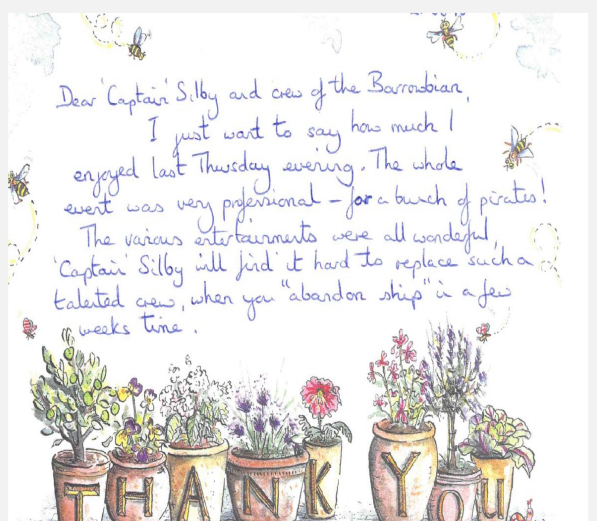 Dear 'Captain' Silby and crew of the Barrowbian,
I just want to say how much I
enjoyed last Thursday evening. The whole
event was very professional – for a bunch of pirates!
The various entertainments were all wonderful,
'Captain' Silby will find it hard to replace such a
talented crew, when you "abandon ship" in a few
weeks time.
THANK YOU